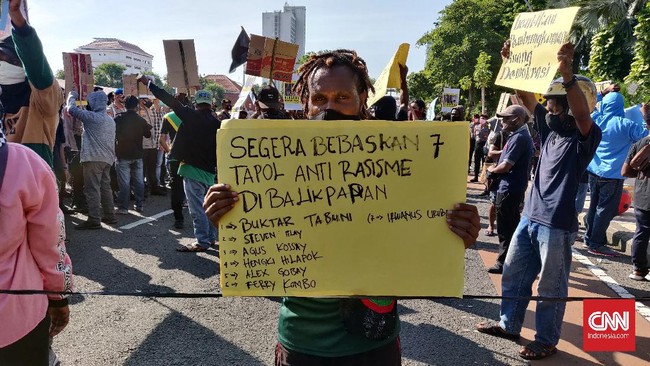 SEGERA BEBASKAN 7
TAPOL ANTI RASISME
DI BALIKPAPAN
1 → BUKTAR TABUNI (7→ IRWANUS
2 → STEVEN ITLAY
3 → AGUS KOSSAY
4 → HENGKI HILAPOK
5 → ALEX GOBAY
6 → FERRY KOMBO
Ruang
Demokrasi
CNN
Indonesia.com